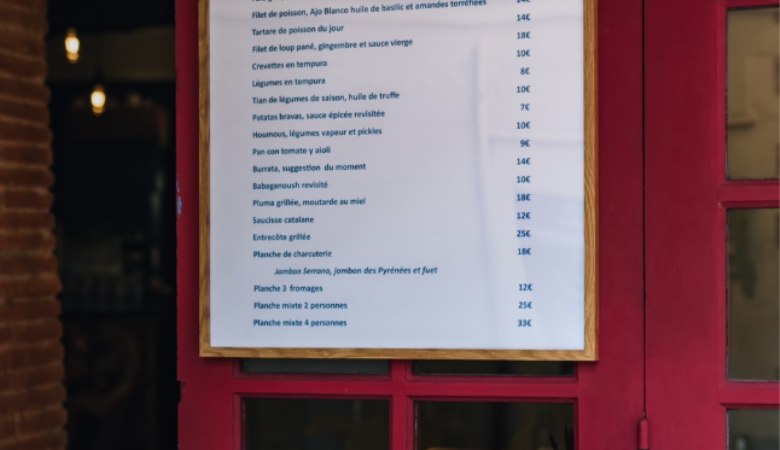 Filet de poisson, Ajo Blanco huile de basilic et amandes torréfiées
Tartare de poisson du jour 14€
Filet de loup pané, gingembre et sauce vierge 18€
Crevettes en tempura 10€
Légumes en tempura 8€
Tian de légumes de saison, huile de truffe 10€
Patatas bravas, sauce épicée revisitée 7€
Houmous, légumes vapeur et pickles 10€
Pan con tomate y aioli 9€
Burrata, suggestion du moment 14€
Babaganoush revisité 10€
Pluma grillée, moutarde au miel 18€
Saucisse catalane 12€
Entrecôte grillée 25€
Planche de charcuterie 18€
Jambon Serrano, jambon des Pyrénées et fuet
Planche 3 fromages 12€
Planche mixte 2 personnes 25€
Planche mixte 4 personnes 33€